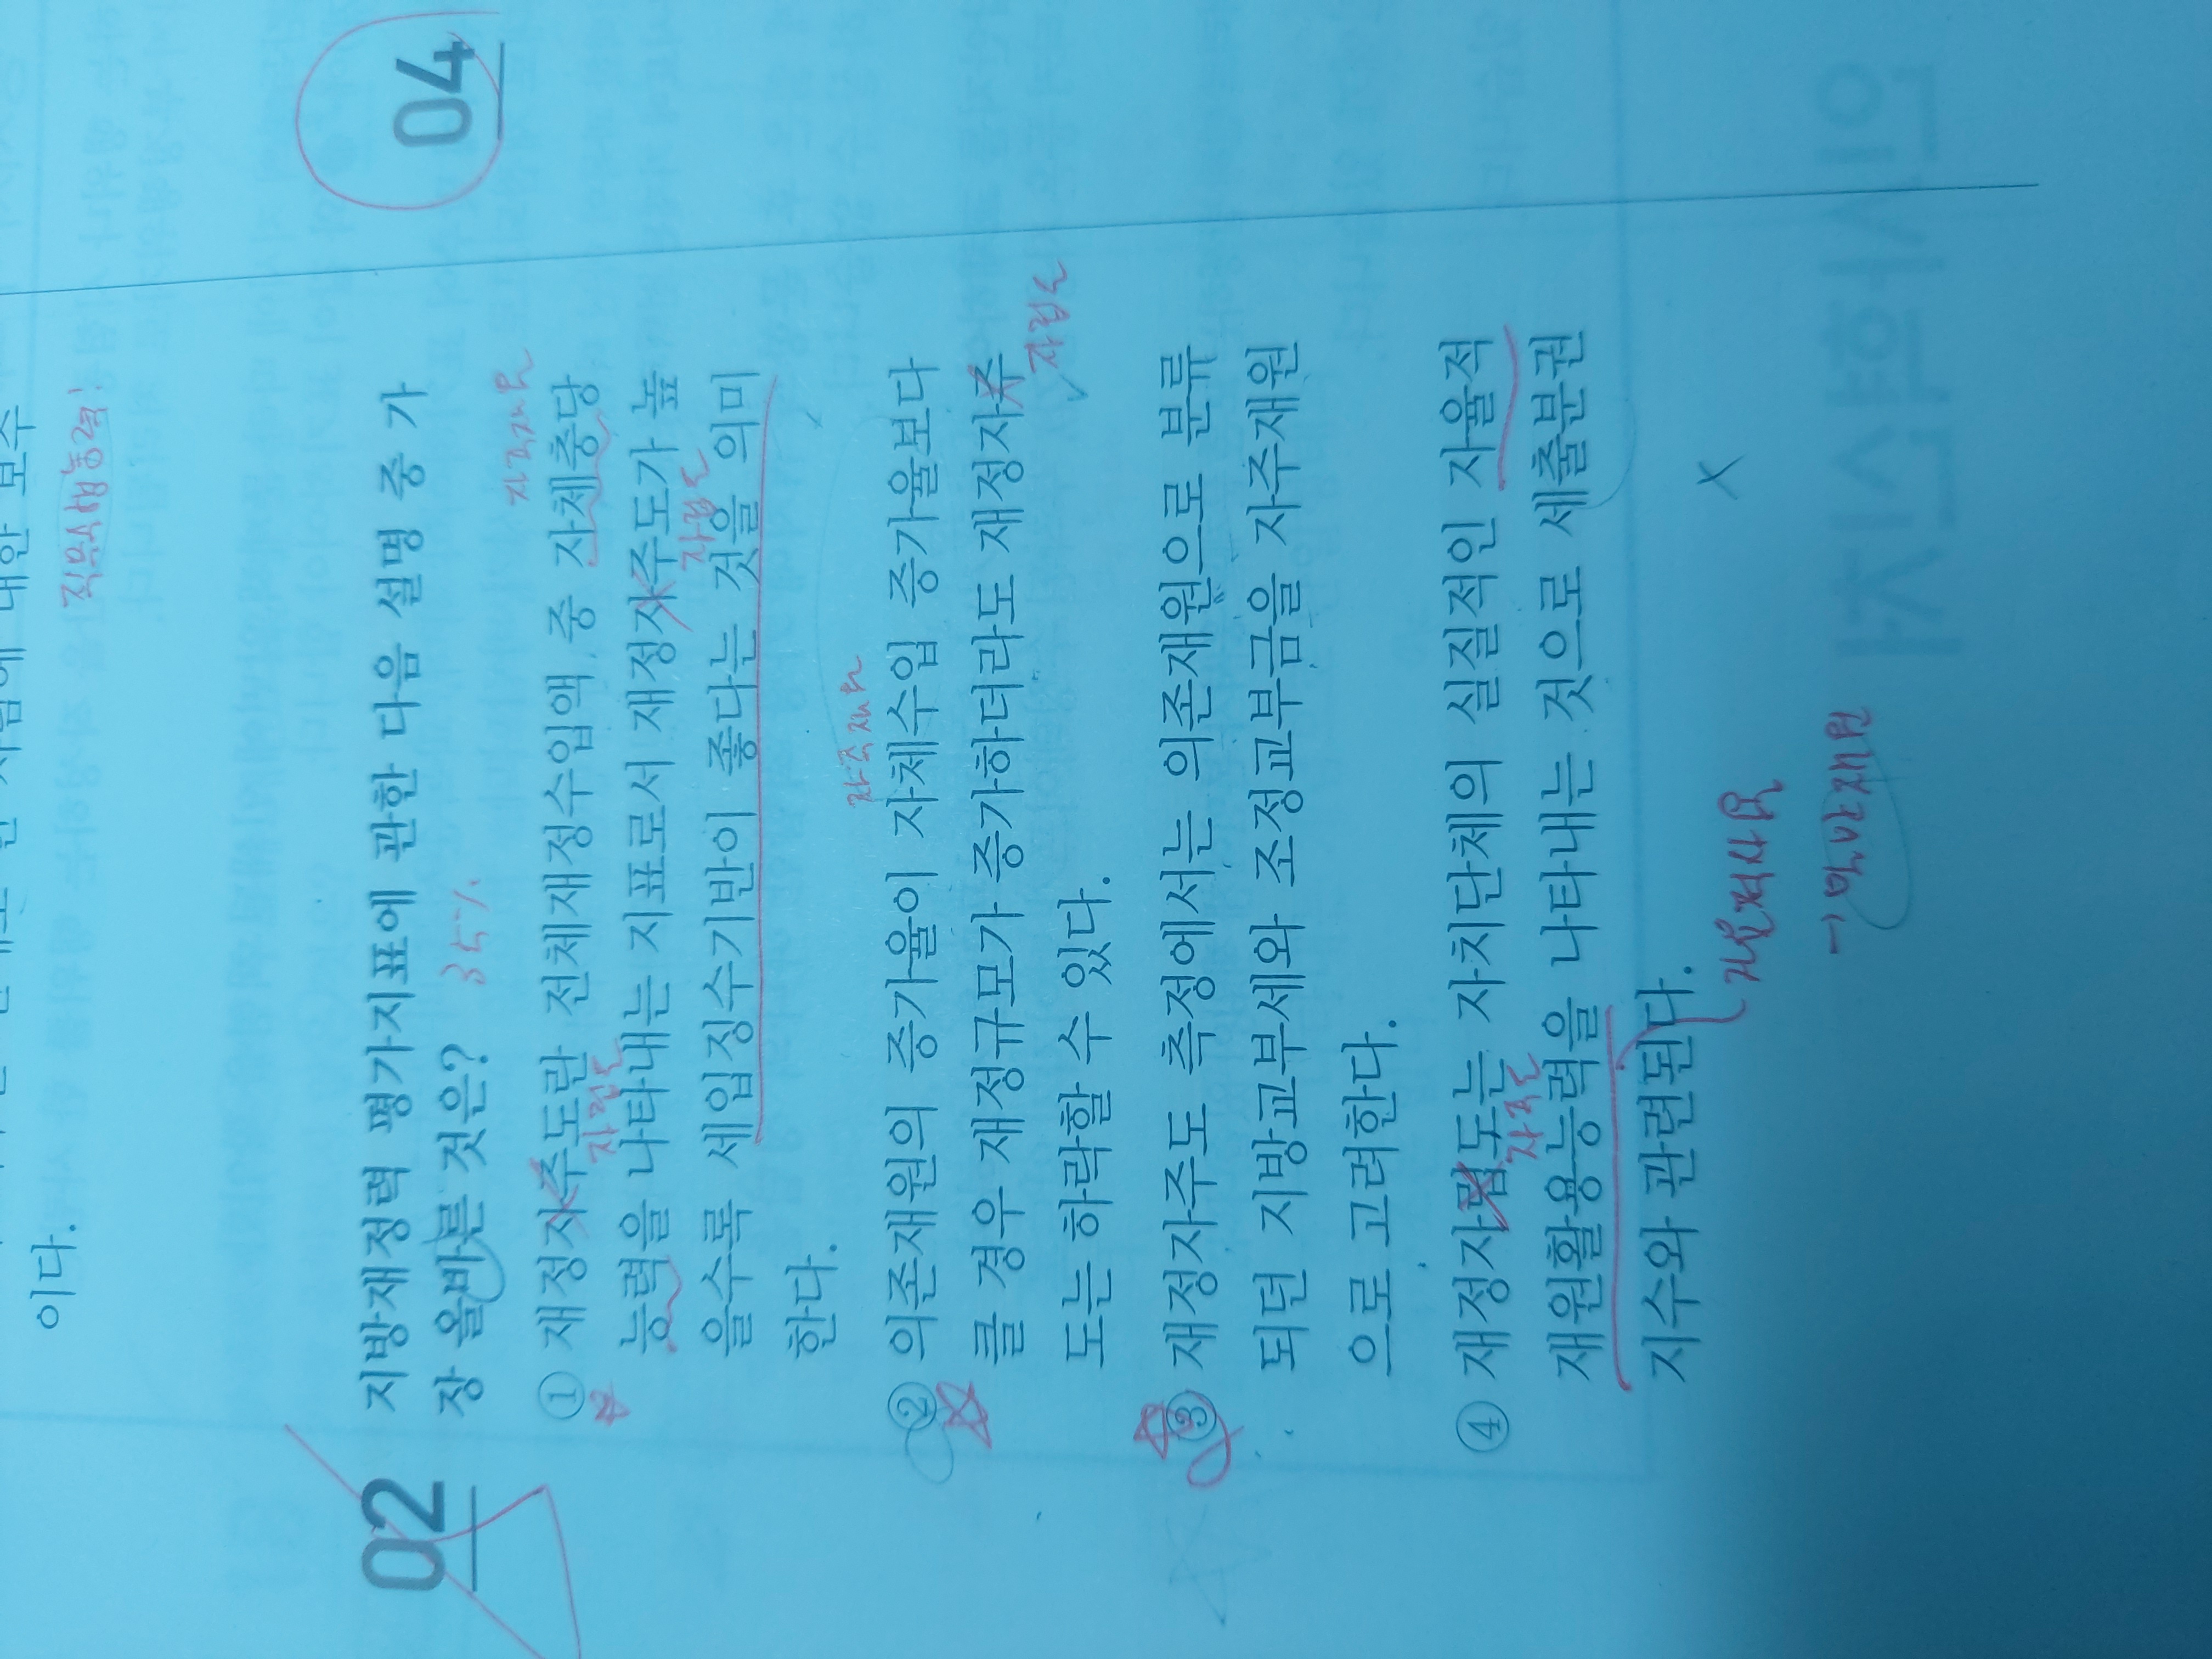 이다.
직무수행능력!
02
지방재정력 평가지표에 관한 다음 설명 중 가
장 올바른 것은?
35%
자주재원
① 재정자주도란 전체재정수입액 중 자체충당
자립도
능력을 나타내는 지표로서 재정자주도가 높
자립도
을수록 세입징수기반이 좋다는 것을 의미
한다.
자주재원
② 의존재원의 증가율이 자체수입 증가율보다
클 경우 재정규모가 증가하더라도 재정자주
자립도
도는 하락할 수 있다.
③ 재정자주도 측정에서는 의존재원으로 분류
되던 지방교부세와 조정교부금을 자주재원
으로 고려한다.
④ 재정자립도는 자치단체의 실질적인 자율적
자주도
재원활용능력을 나타내는 것으로 세출분권
지수와 관련된다.
X
일반재원
04